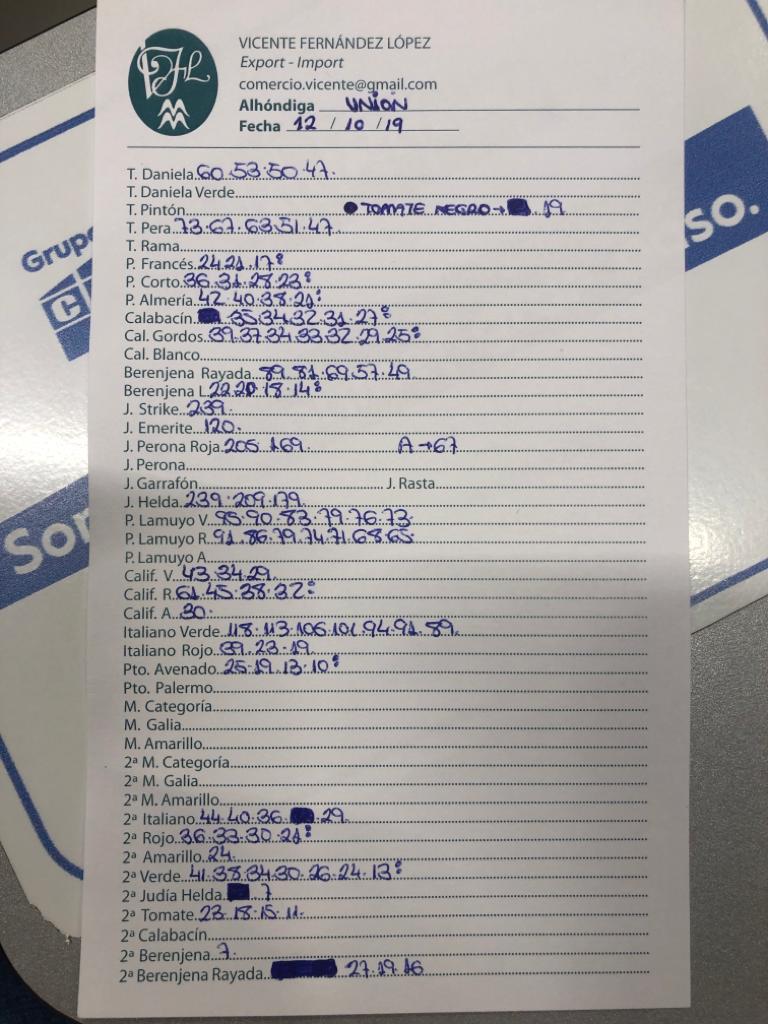 VFL
VICENTE FERNÁNDEZ LÓPEZ
Export - Import
comercio.vicente@gmail.com
Alhóndiga UNIÓN
Fecha 12 / 10 / 19
T. Daniela 60.53.50.47.
T. Daniela Verde
T. Pintón ● TOMATE NEGRO → 19
T. Pera 73.67.63.51.47.
T. Rama
P. Francés 24.21.17:
P. Corto 36.31.28.23:
P. Almería 42.40.38.21:
Calabacín 35.34.32.31.27:
Cal. Gordos 39.37.34.33.32.29.25:
Cal. Blanco
Berenjena Rayada 89.81.69.57.49
Berenjena L 22.20.18.14:
J. Strike 239.
J. Emerite 120.
J. Perona Roja 205.169. A → 67
J. Perona
J. Garrafón J. Rasta
J. Helda 239.209.179
P. Lamuyo V. 95.90.83.79.76.73
P. Lamuyo R. 91.86.79.74.71.68.65
P. Lamuyo A.
Calif. V. 43.34.29.
Calif. R. 61.45.38.32:
Calif. A. 30.
Italiano Verde 118.113.106.101.94.91.89.
Italiano Rojo 39.23.19.
Pto. Avenado 25.19.13.10:
Pto. Palermo
M. Categoría
M. Galia
M. Amarillo
2ª M. Categoría
2ª M. Galia
2ª M. Amarillo
2ª Italiano 44.40.36. 29.
2ª Rojo 36.33.30.21:
2ª Amarillo 24.
2ª Verde 41.38.34.30.26.24.13:
2ª Judía Helda 7
2ª Tomate 23.18.15.11.
2ª Calabacín
2ª Berenjena 7.
2ª Berenjena Rayada 27.19.16
Grupo
so.